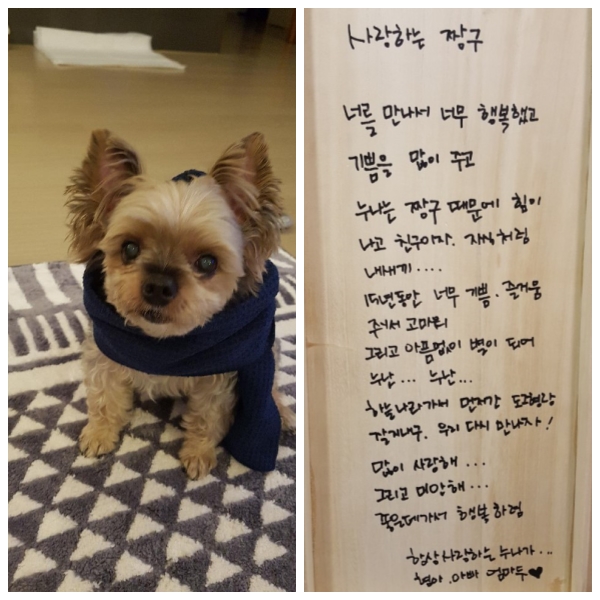 사랑하는 짱구
너를 만나서 너무 행복했고
기쁨을 많이 주고
누나는 짱구 때문에 힘이
나고 친구이자. 자식처럼
내새끼....
15년동안 너무 기쁨. 즐거움
주어서 고마워
그리고 아픔없이 별이 되어
누난... 누난...
하늘나라가서 먼저간 도경이랑
잘지내구. 우리 다시 만나자!
많이 사랑해...
그리고 미안해...
좋은데가서 행복하렴
항상 사랑하는 누나가...
형아. 아빠 엄마두♥